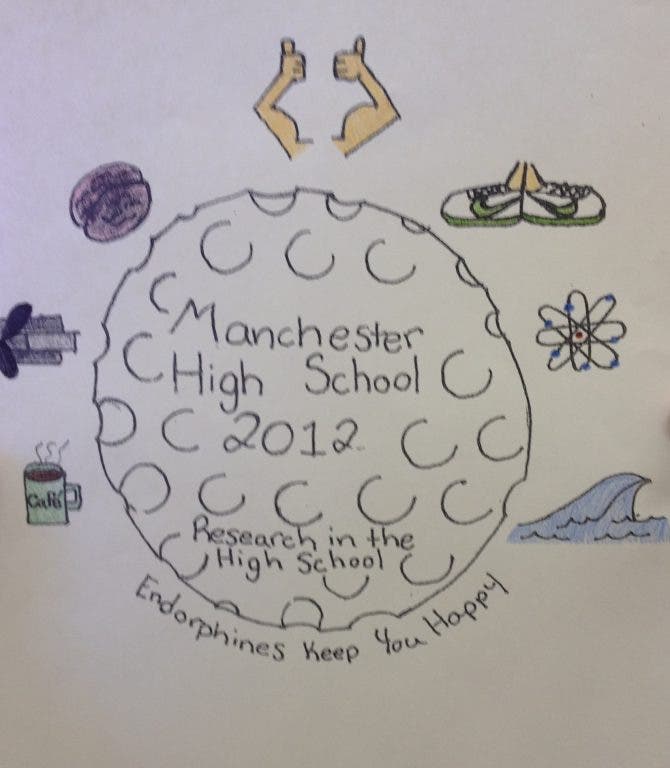 Manchester
High School
2012
Café
Research in the
High School
Endorphines Keep You Happy